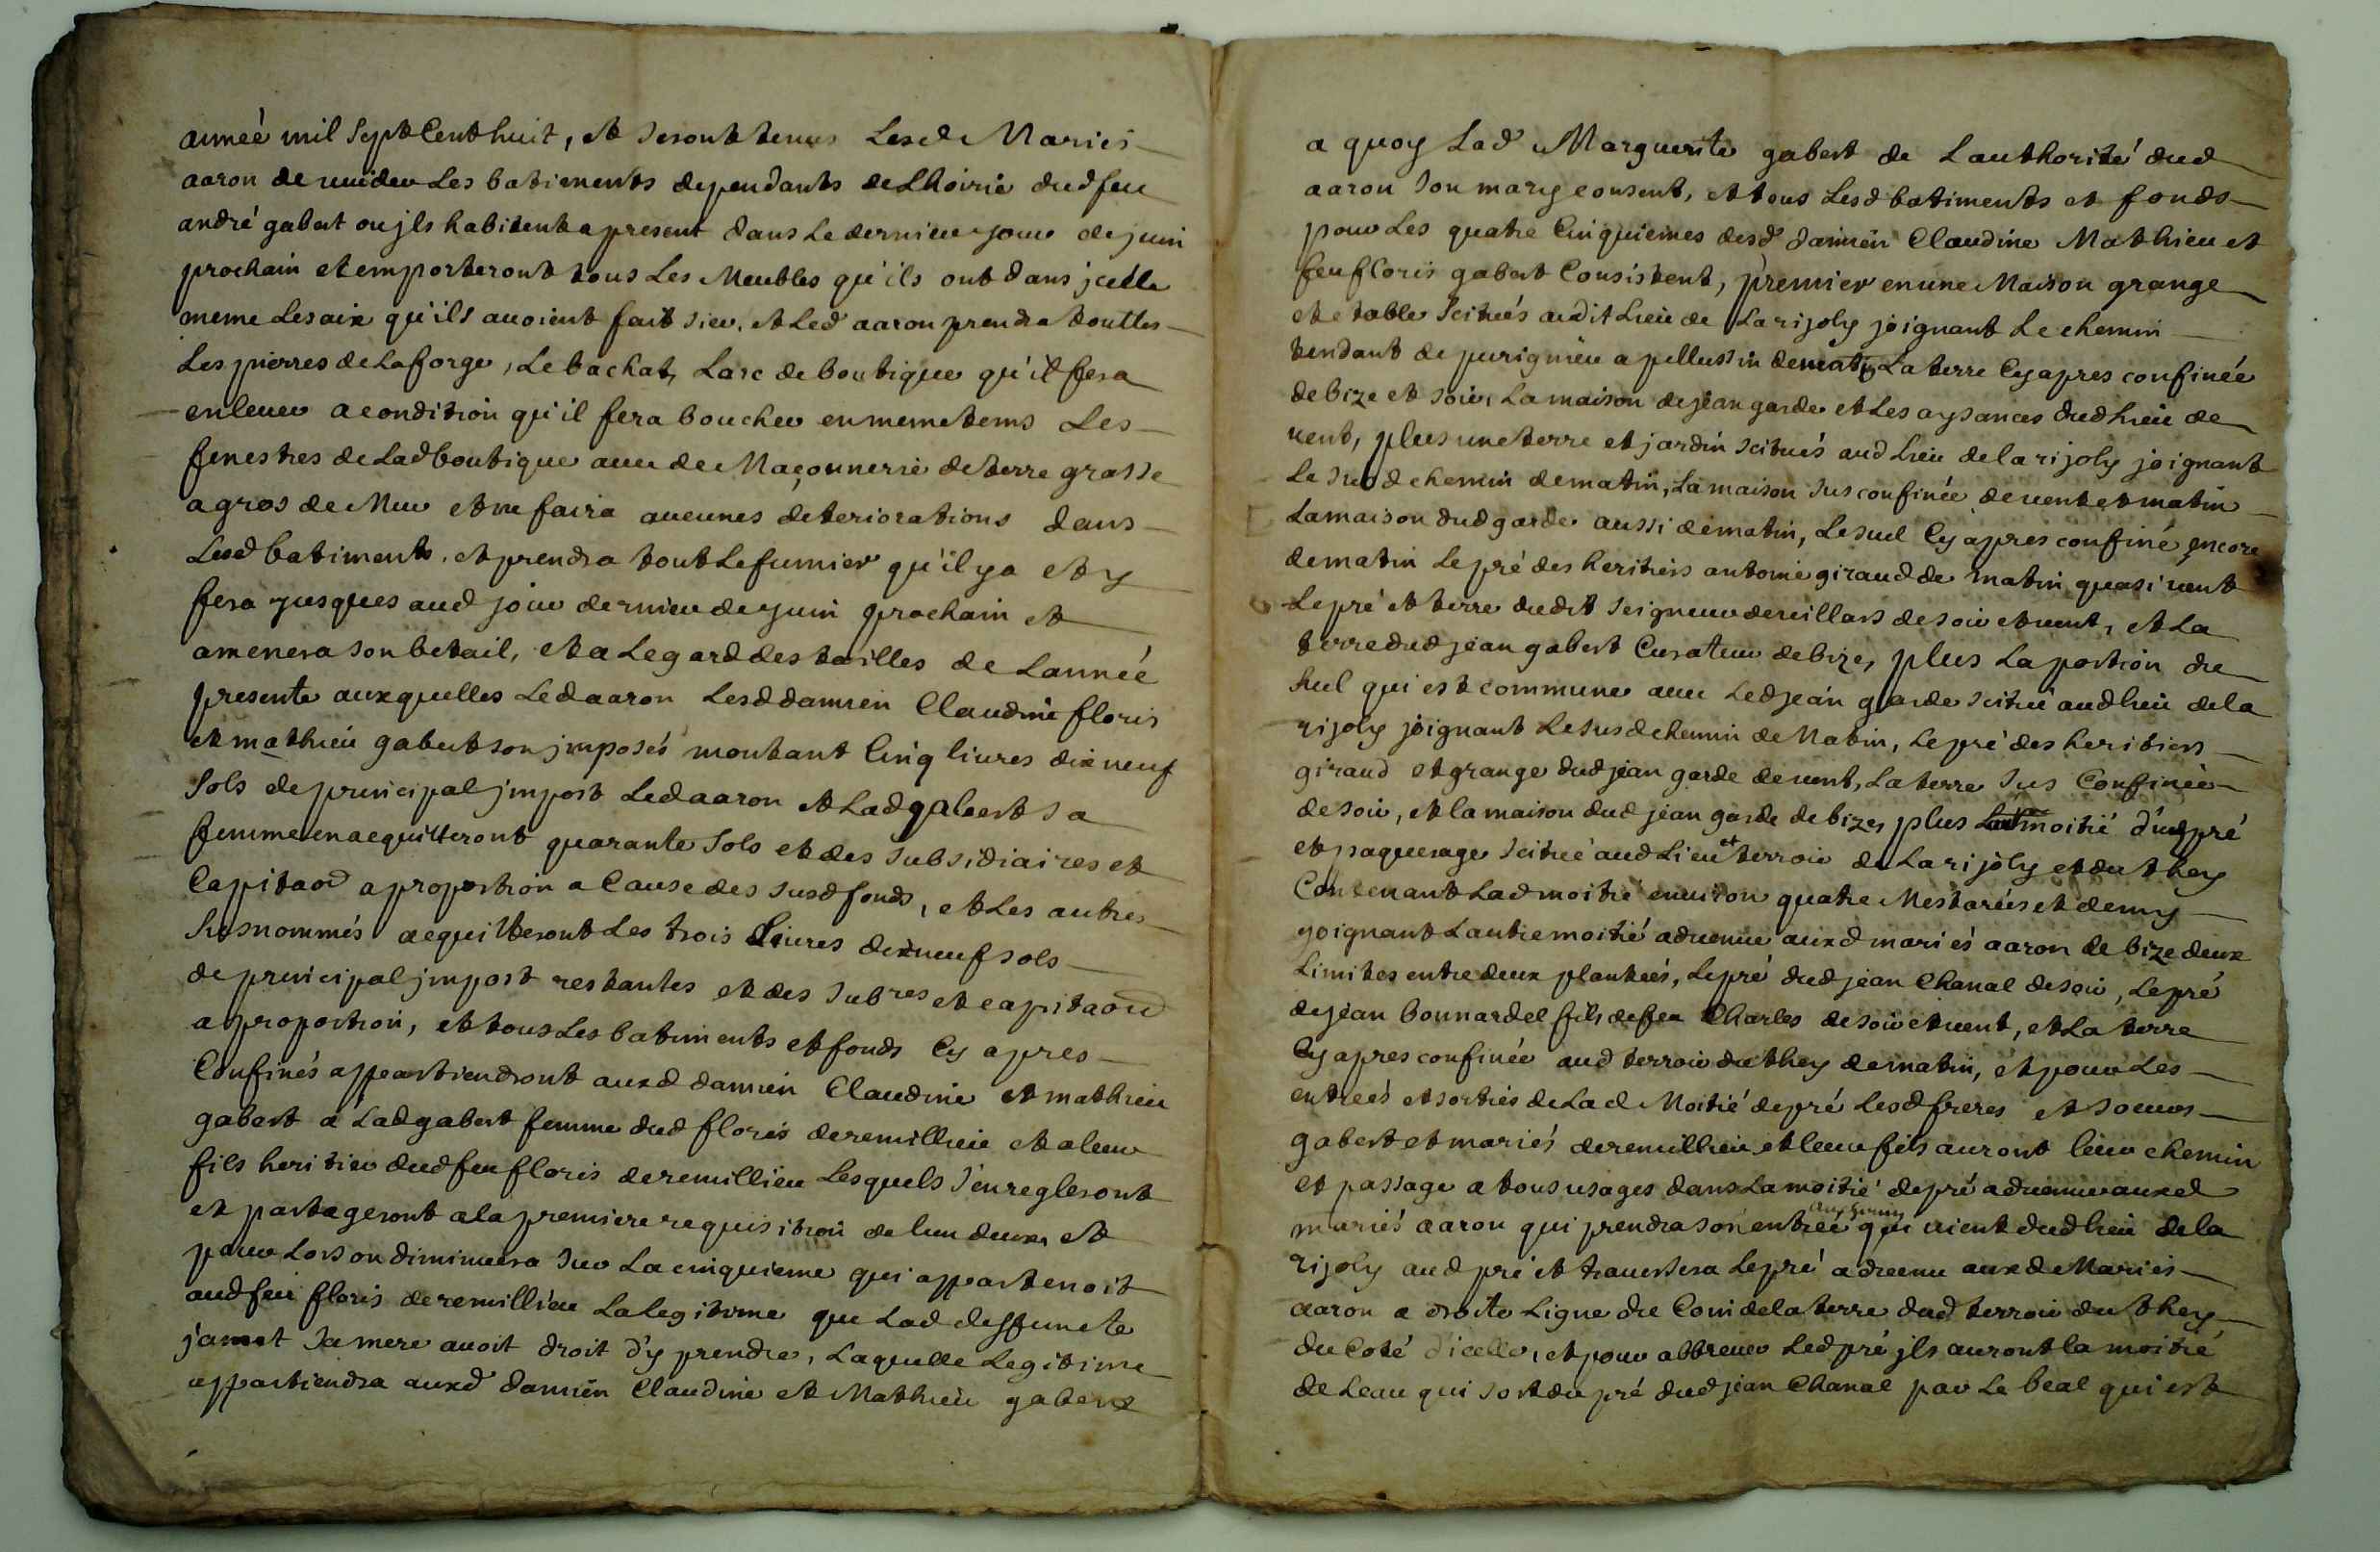 année mil sept Cent huit, et seront tenus Lesd Mariés
aaron de vuider Les batiments dependants de Lhoirie dud feu
andré gabert ou jls habitent a present dans Le dernier jour de juin
prochain et emporteront tous Les Meubles qu'ils ont dans jcelle
meme Les aix qu'ils auoient fait sier, et Led aaron prendra touttes
Les pierres de La forge, Le bachat, Larc de boutique qu'il fera
enleuer a condition qu'il fera boucher en meme tems Les
fenestres de Lad boutique auec de Maçonnerie de terre grasse
a gros de Mur et ne faira aucunes deteriorations dans
Lesd batiments, et prendra tout Le fumier qu'il y a et y
fera jusques aud jour dernier de juin prochain et
amenera son betail, et a Legard des tailles de Lannée
presente auxquelles Led aaron Lesd damien Claudine floris
et mathieu gabert son jmposés montant Cinq liures dix neuf
sols de principal jmpost Led aaron et Lad gabert sa
femme en acquitteront quarante sols et des subsidiaires et
Capitaod a proportion a Cause des susd fonds, et Les autres
susnommés acquitteront Les trois Liures dixneuf sols
de principal jmpost restantes et des subres et capitaod
a proportion, et tous Les batiments et fonds Cy apres
Confinés appartiendront auxd damien Claudine et mathieu
gabert a Lad gabert femme dud floris deremillieu et a leur
fils heritier dud feu floris deremillieu Lesquels s'en regleront
et partageront a la premiere requisition de lun deux, et
pour Lors on diminuera sur La cinquieme qui appartenoit
aud feu floris deremillieu La Legitime que Lad deffuncte
jamet sa mere auoit droit d'y prendre, Laquelle Legitime
appartiendra auxd damien Claudine et Mathieu gabert
a quoy Lad Marguerite gabert de Lauthorité dud
aaron son mary consent, et tous Lesd batiments et fonds
pour Les quatre Cinquiemes desd damien Claudine Mathieu et
feu floris gabert Consistent, premier en une Maison grange
et etable scitués audit Lieu de Larijoly joignant Le chemin
tendant de purignieu a pellussin de matin La terre Cy apres confinée
de bize et soir, La maison de jean garde et Les aysances dud lieu de
uent, plus une terre et jardin scitués aud Lieu de la rijoly joignant
Le susd chemin de matin, La maison sus confinée de uent et matin
La maison dud garde aussi de matin, Le suel Cy apres confiné encore
de matin Le pré des heritiers antoine giraud de matin quasi uent
Le pré et terre dudit seigneur de villars de soir et uent, et La
terre dud jean gabert Curateur de bize, plus La portion du
suel qui est commune auec Led jean garde scitué aud lieu de la
rijoly joignant Le susd chemin de Matin, Le pré des heritiers
giraud et grange dud jean garde de uent, La terre sus Confinée
de soir, et la maison dud jean garde de bize, plus La moitié d'un pré
et paquerage scitué aud Lieu et terroir de La rijoly et du they
Contenant Lad moitié enuiron quatre Mestarées et demy
joignant Lautre moitié aduenue auxd mariés aaron de bize deux
Limites entre deux plantées, Le pré dud jean Chanal de soir, Le pré
de jean bonnardel fils de feu Charles de soir et uent, et La terre
Cy apres confinée aud terroir du they de matin, et pour Les
entrées et sorties de Lad Moitié de pré Lesd freres et soeurs
gabert et mariés deremillieu et leur fils auront leur chemin
et passage a tous usages dans La moitié de pré aduenue auxd
mariés aaron qui prendra son entrée qui vient dud lieu de la
rijoly aud pré et trauersera Le pré aduenu auxd Mariés
aaron a droite Ligne du Coin de la terre dud terroir du they
du Coté d'icelle, et pour abbreuer Led pré jls auront la moitié
de Leau qui sort du pré dud jean Chanal par Le beal qui est